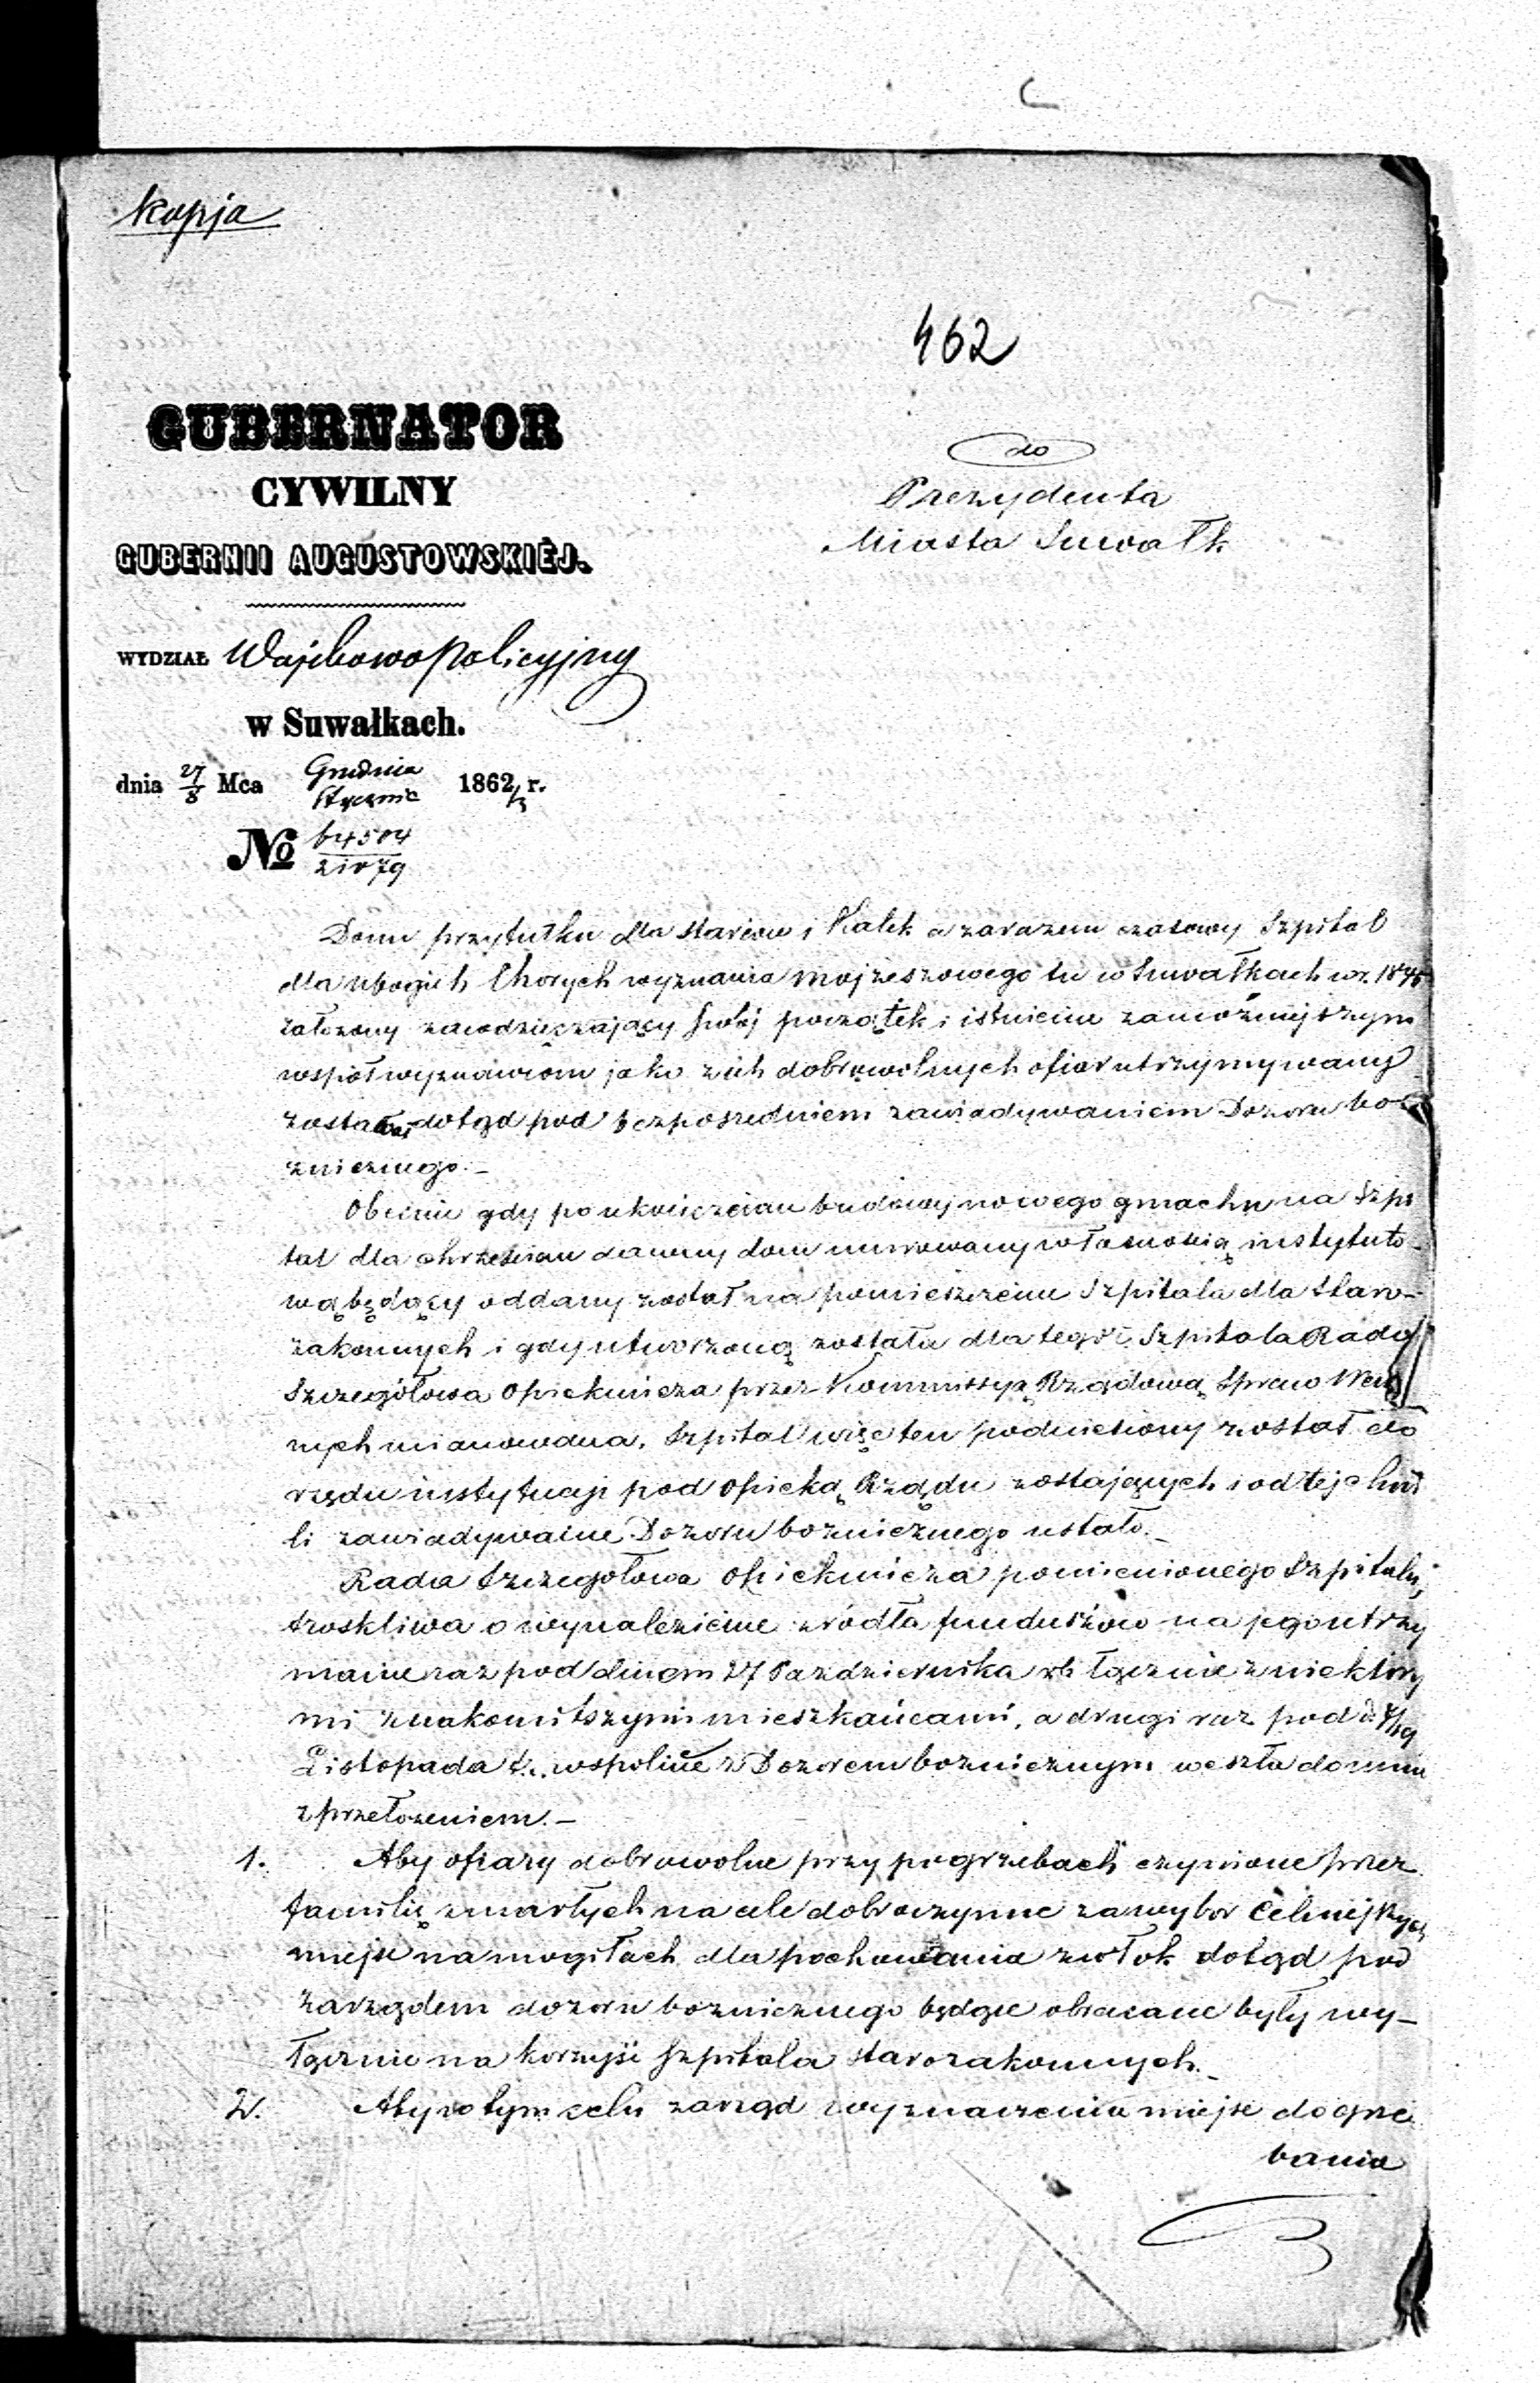 kopja
462
GUBERNATOR
CYWILNY
GUBERNII AUGUSTOWSKIÉJ.
do
Prezydenta
Miasta Suwałk
WYDZIAŁ Wojskowo Policyjny
w Suwałkach.
dnia 27/8 Mca Grudnia/Stycznia 1862/3 r.
No 64504/21079
Dom przytułku dla starców i Kalek a zarazem czasowy Szpital
dla ubogich Chorych wyznania mojżeszowego tu w Suwałkach w r.
założony zawdzięczający swój początek i istnienie zamożniejszym
współwyznawcom jako z ich dobrowolnych ofiar utrzymywany
dotąd pod bezpośredniem zawiadywaniem Dozoru bo
znicznego.–
Obecnie gdy po ukończeniu budowy nowego gmachu na Szpi
tal dla chrześcian dawny dom murowany własnością instytuto-
wą będący oddany został na pomieszczenie Szpitala dla Staro-
zakonnych i gdy utworzoną została dla tegoż Szpitala Rada
Szczegółowa Opiekuńcza przez Kommissyą Rządową Spraw Wewn
nych mianowana, Szpital więc ten podniesiony został do
rzędu instytucji pod opieką Rządu zostających i od tej chwi
li zawiadywanie Dozoru bożniczego ustało.–
Rada Szczegółowa Opiekuńcza pomienionego Szpitala,
troskliwa o wynalezienie źródła funduszów na jego utrzy
manie raz pod dniem 27 Października łącznie z niektóry
mi znakomitszymi mieszkańcami, a drugi raz pod d. 7/19
Listopada wspólnie z Dozorem bożnicznym weszła do mnie
z przełożeniem.–
1. Aby ofiary dobrowolne przy pogrzebach czynione przez
familię zmarłych na cele dobroczynne za wybor celniejszych
miejsc na mogiłach dla pochowania zwłok dotąd pod
zarządem dozoru bożnicznego będące obracane były wy-
łącznie na korzyść Szpitala starozakonnych.–
2. Aby w tym celu zarząd wyznaczenia miejsc do grze
bania